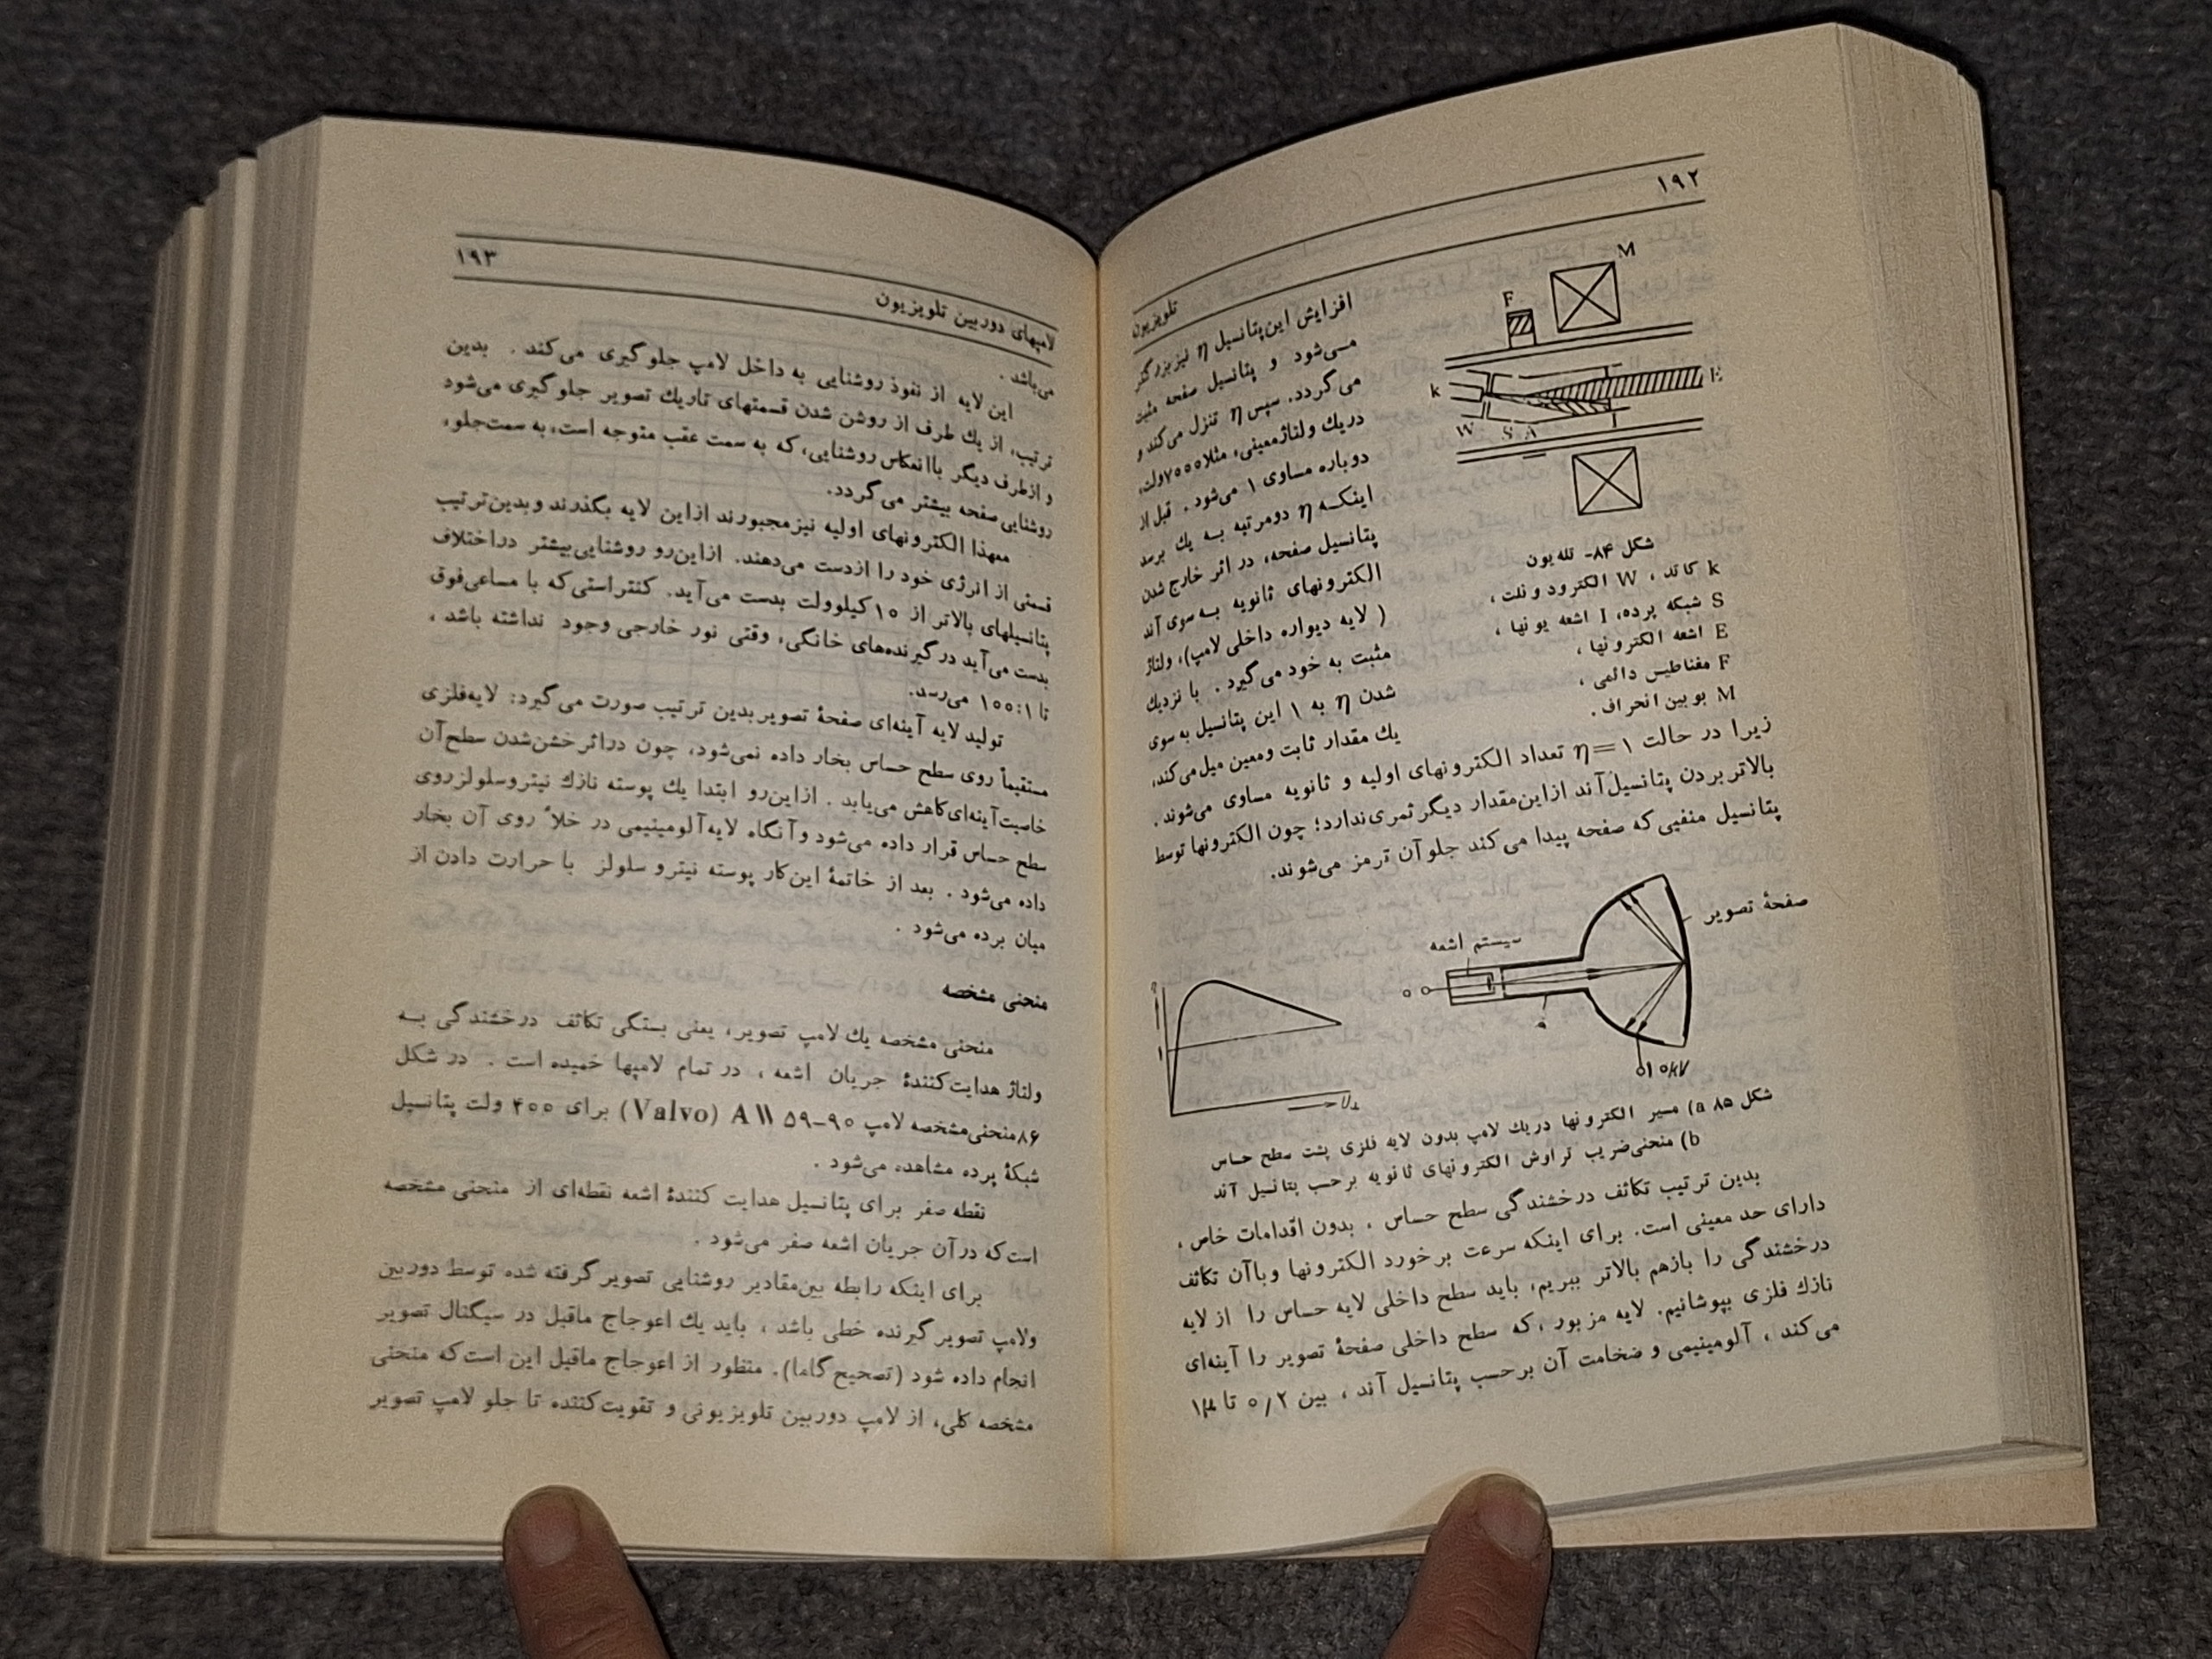 ۱۹۲
تلویزیون
M
F
k
E
W S A
I
شکل ۸۴- تله‌یون
k کاتد ، W الکترود ونلت ،
S شبکه پرده، I اشعه یونها ،
E اشعه الکترونها ،
F مغناطیس دائمی ،
M بوبین انحراف .
افزایش این پتانسیل η نیز بزرگتر
می‌شود و پتانسیل صفحه مثبت
می‌گردد. سپس η تنزل می‌کند و
دریك ولتاژ معینی، مثلا ۷۰۰۰ ولت،
دوباره مساوی ۱ می‌شود . قبل از
اینکـه η دومرتبه بـه یك برسد
پتانسیل صفحه، در اثر خارج شدن
الکترونهای ثانویه بـه سوی آند
( لایه دیواره داخلی لامپ)، ولتاژ
مثبت به خود می‌گیرد . با نزدیك
شدن η به ۱ این پتانسیل به سوی
یك مقدار ثابت ومعین میل می‌کند،
زیرا در حالت η=۱ تعداد الکترونهای اولیه و ثانویه مساوی می‌شوند .
بالاتر بردن پتانسیل آند از این‌مقدار دیگر ثمری ندارد؛ چون الکترونها توسط
پتانسیل منفیی که صفحه پیدا می‌کند جلو آن ترمز می‌شوند.
صفحهٔ تصویر
سیستم اشعه
۱۰kV
۱
شکل ۸۵ a) مسیر الکترونها در یك لامپ بدون لایه فلزی پشت سطح حساس
b) منحنی ضریب تراوش الکترونهای ثانویه برحسب پتانسیل آند
بدین ترتیب تکاثف درخشندگی سطح حساس ، بدون اقدامات خاص ،
دارای حد معینی است. برای اینکه سرعت برخورد الکترونها وباآن تکاثف
درخشندگی را بازهم بالاتر ببریم، باید سطح داخلی لایه حساس را از لایه
نازك فلزی بپوشانیم. لایه مزبور ، که سطح داخلی صفحهٔ تصویر را آینه‌ای
می‌کند ، آلومینیمی و ضخامت آن برحسب پتانسیل آند ، بین ۰/۲ تا ۱μ
۱۹۳
لامپهای دوربین تلویزیون
می‌باشد .
این لایه از نفوذ روشنایی به داخل لامپ جلوگیری می‌کند . بدین
ترتیب، از یك طرف از روشن شدن قسمتهای تاریك تصویر جلوگیری می‌شود
و ازطرف دیگر باانعکاس روشنایی، که به سمت عقب متوجه است، به سمت‌جلو،
روشنایی صفحه بیشتر می‌گردد.
معهذا الکترونهای اولیه نیز مجبورند ازاین لایه بگذرند و بدین‌ترتیب
قسمتی از انرژی خود را ازدست می‌دهند. ازاین‌رو روشنایی‌بیشتر دراختلاف
پتانسیلهای بالاتر از ۱۰ کیلوولت بدست می‌آید. کنتراستی‌که با مساعی‌فوق
بدست می‌آید در گیرنده‌های خانگی، وقتی نور خارجی وجود نداشته باشد ،
تا ۱۰۰:۱ می‌رسد.
تولید لایه آینه‌ای صفحهٔ تصویر بدین ترتیب صورت می‌گیرد: لایه‌فلزی
مستقیماً روی سطح حساس بخار داده نمی‌شود، چون دراثر خشن‌شدن سطح‌آن
خاصیت‌آینه‌ای‌کاهش می‌یابد . ازاین‌رو ابتدا یك پوسته نازك نیتروسلولز روی
سطح حساس قرار داده می‌شود وآنگاه لایه آلومینیمی در خلأ روی آن بخار
داده می‌شود . بعد از خاتمهٔ این‌کار پوسته نیترو سلولز با حرارت دادن از
میان برده می‌شود .
منحنی مشخصه
منحنی مشخصه یك لامپ تصویر، یعنی بستگی تکاثف درخشندگی بـه
ولتاژ هدایت‌کنندهٔ جریان اشعه ، در تمام لامپها خمیده است . در شکل
۸۶منحنی‌مشخصه لامپ AW ۵۹-۹۰ (Valvo) برای ۴۰۰ ولت پتانسیل
شبکهٔ پرده مشاهده می‌شود .
نقطه صفر برای پتانسیل هدایت کنندهٔ اشعه نقطه‌ای از منحنی مشخصه
است که درآن جریان اشعه صفر می‌شود .
برای اینکه رابطه بین‌مقادیر روشنایی تصویر گرفته شده توسط دوربین
ولامپ تصویر گیرنده خطی باشد ، باید یك اعوجاج ماقبل در سیگنال تصویر
انجام داده شود (تصحیح گاما). منظور از اعوجاج ماقبل این است‌که منحنی
مشخصه کلی، از لامپ دوربین تلویزیونی و تقویت‌کننده تا جلو لامپ تصویر